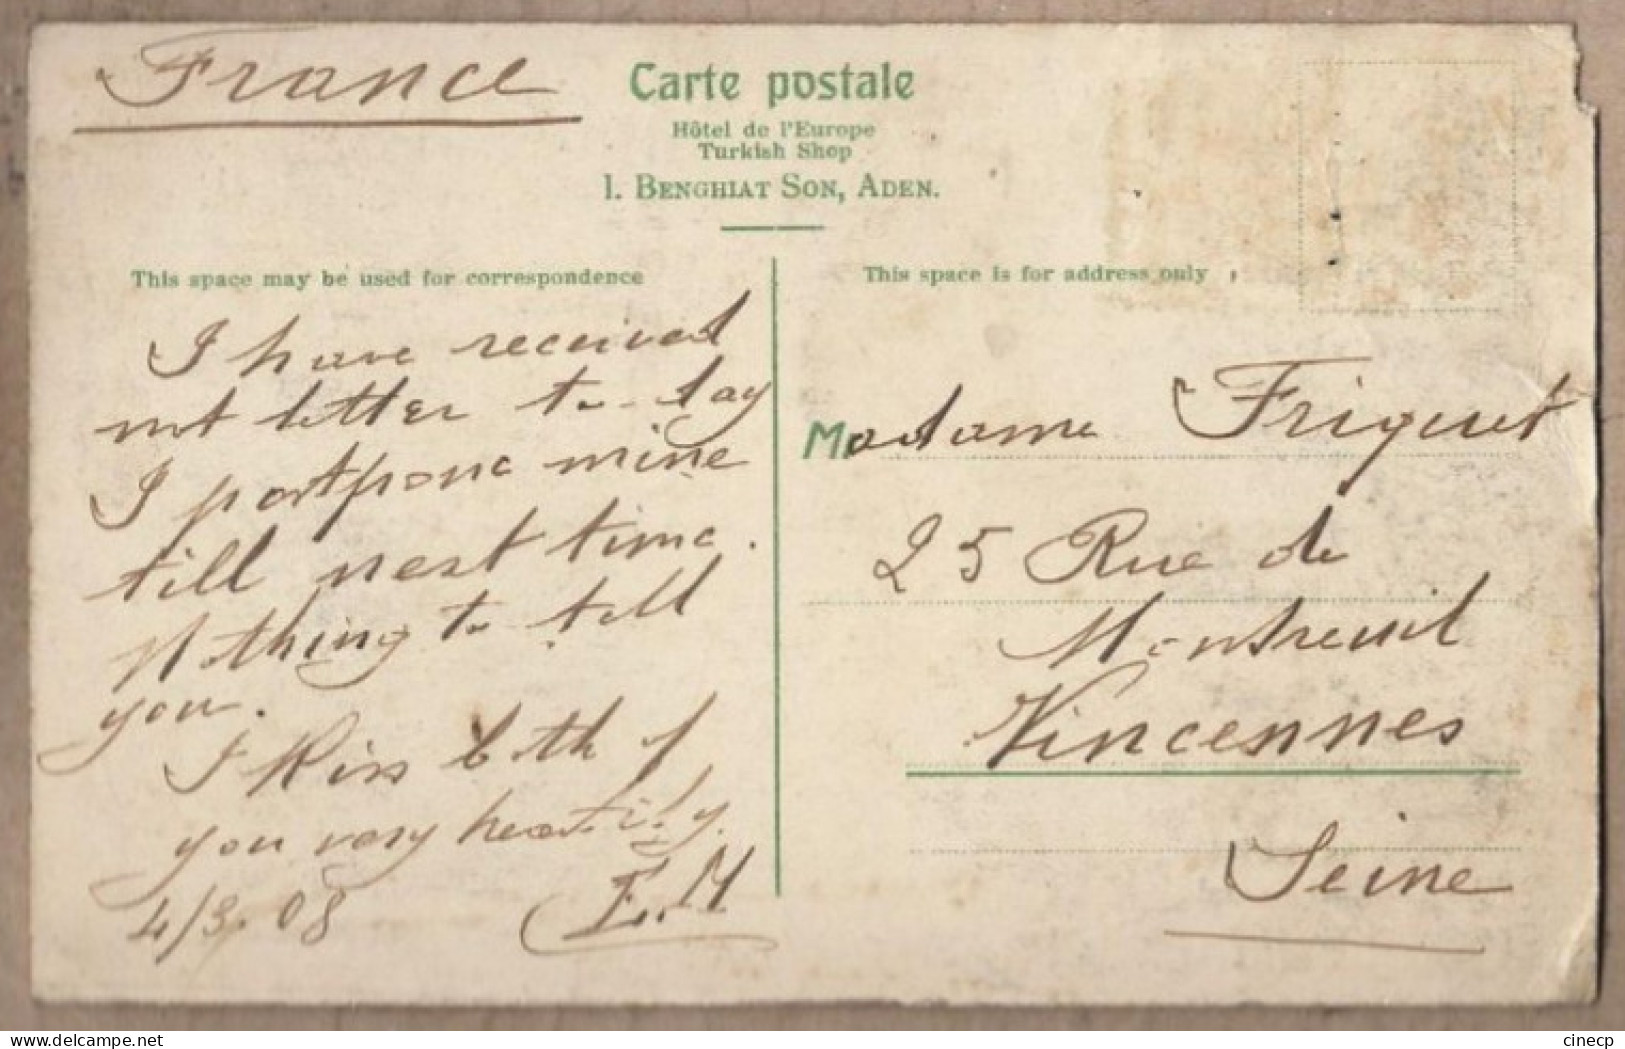 France
Carte postale
Hôtel de l'Europe
Turkish Shop
I. Benghiat Son, Aden.
This space may be used for correspondence
I have received
not letter to-day
I postpone mine
till next time.
Nothing to tell
you.
I Kiss both of
you very heartily.
4/3.08
E.M
This space is for address only
Madame Friquet
25 Rue de
Montreuil
Vincennes
Seine
www.delcampe.net
cinecp